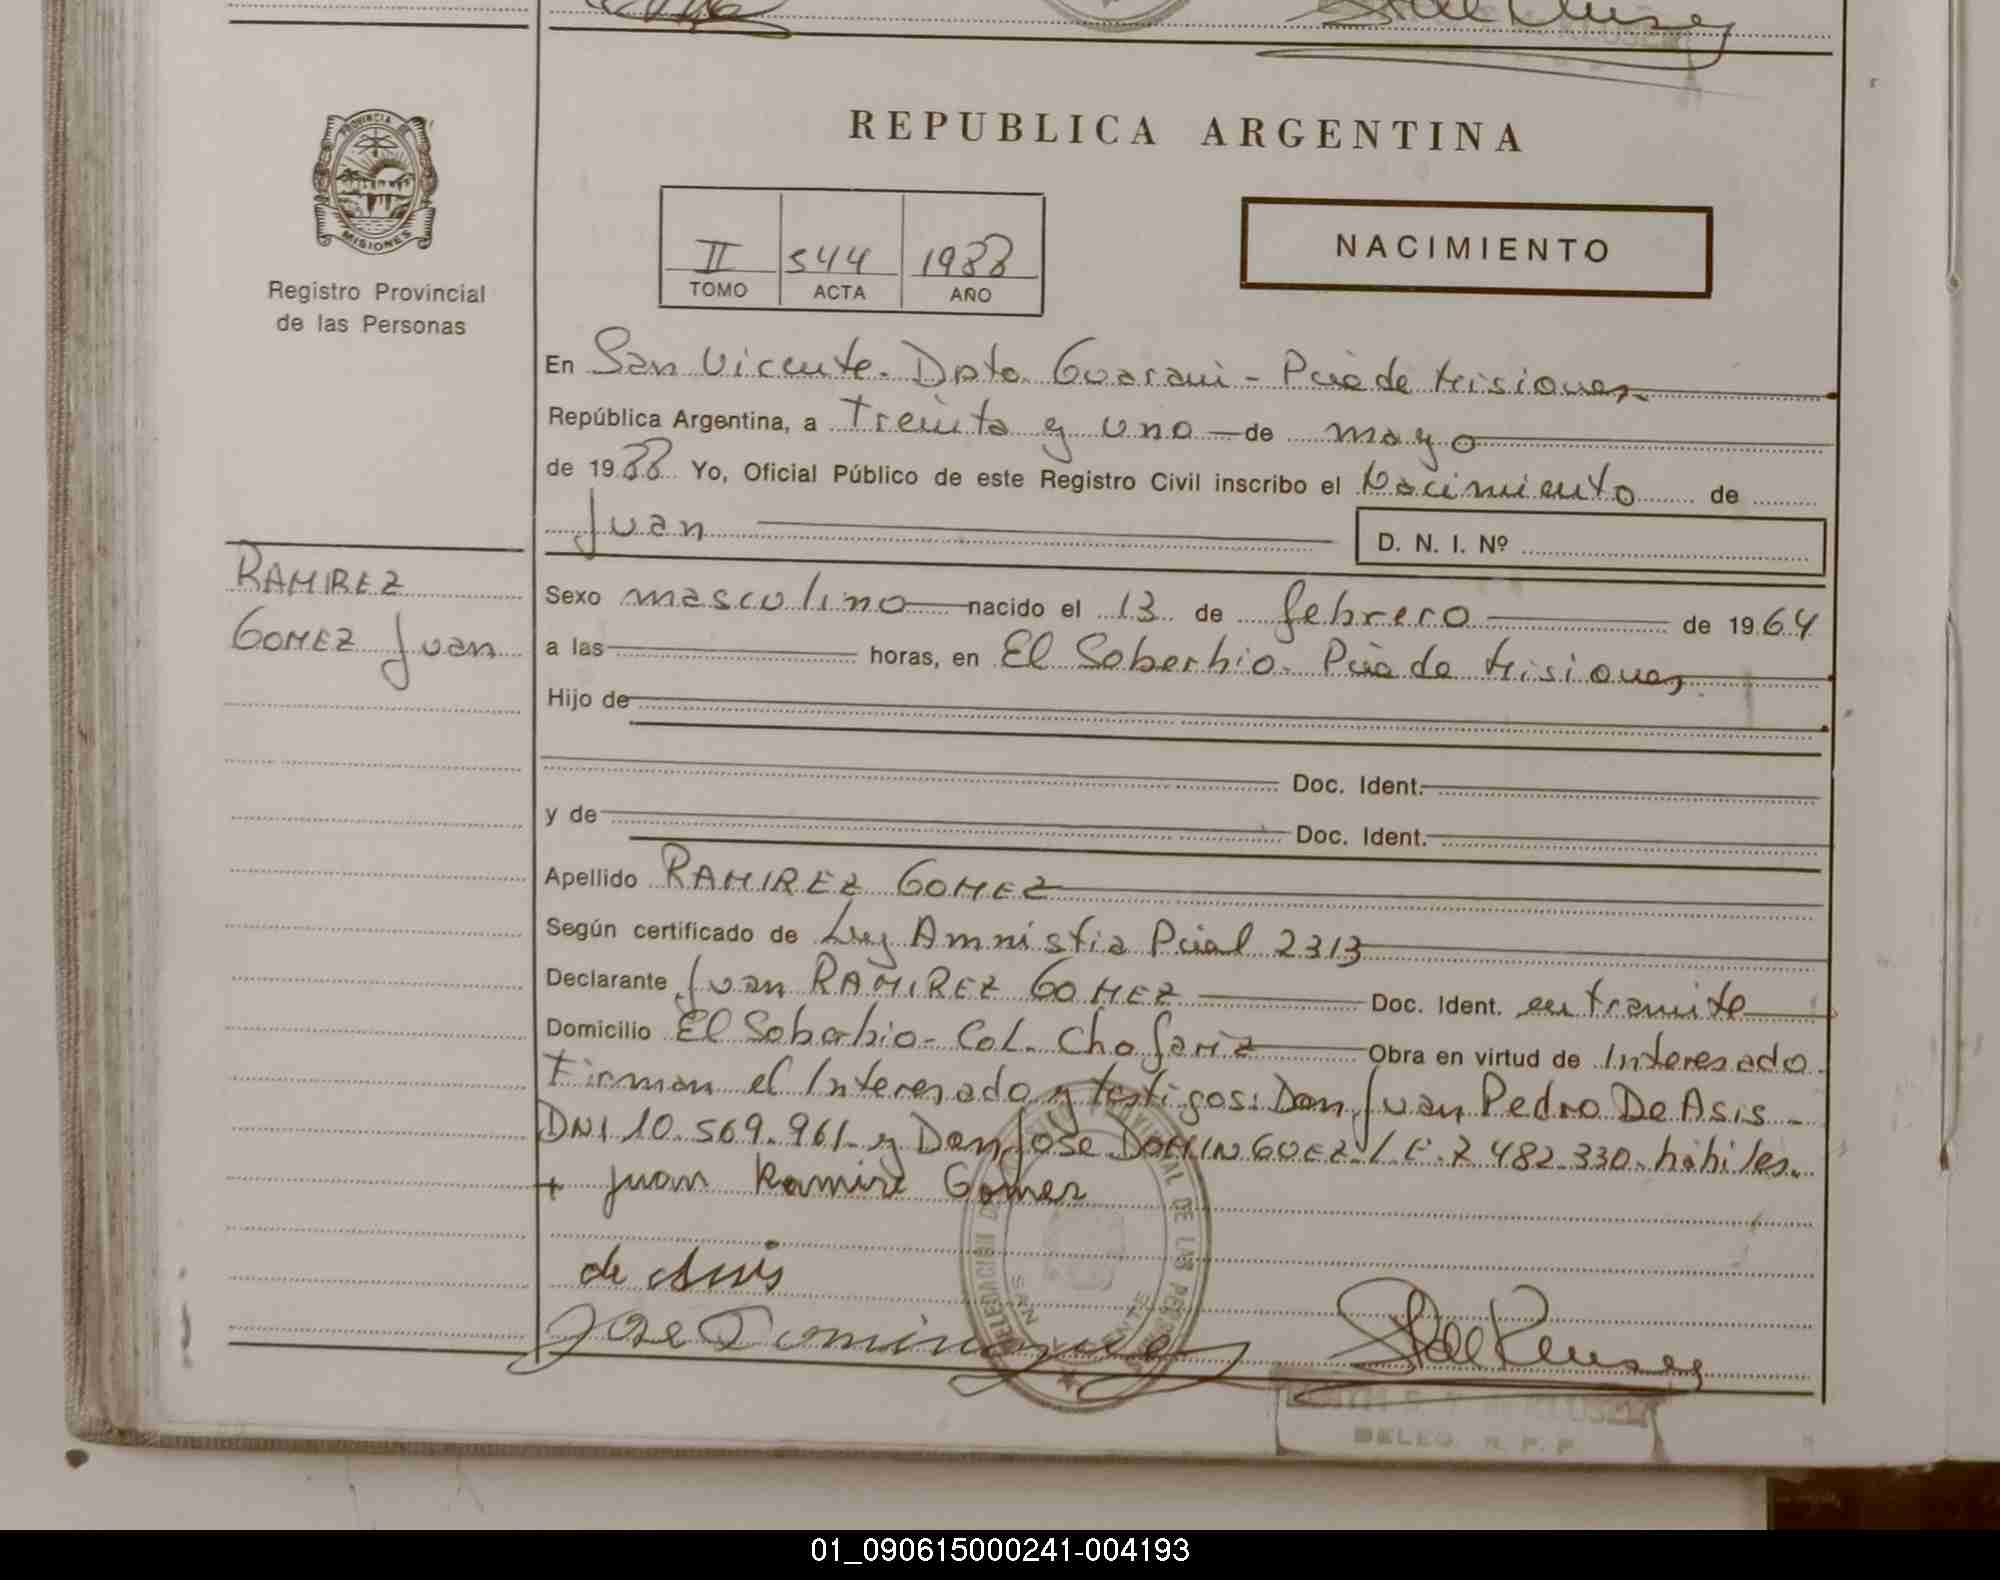 REPUBLICA ARGENTINA
PROVINCIA DE
MISIONES
Registro Provincial
de las Personas
II 544 1988
TOMO ACTA AÑO
NACIMIENTO
En San Vicente. Dpto. Guarani - Pcia de Misiones
República Argentina, a Treinta y uno de mayo
de 1988 Yo, Oficial Público de este Registro Civil inscribo el Nacimiento de
Juan
D. N. I. Nº
RAMIREZ
GOMEZ Juan
Sexo masculino nacido el 13 de febrero de 1964
a las horas, en El Soberbio. Pcia de Misiones
Hijo de
Doc. Ident.
y de Doc. Ident.
Apellido RAMIREZ GOMEZ
Según certificado de Ley Amnistia Pcial 2313
Declarante Juan RAMIREZ GOMEZ Doc. Ident. en tramite
Domicilio El Soberbio - Col. Chafariz Obra en virtud de Interesado.
Firman el Interesado y testigos: Don Juan Pedro De Asis -
DNI 10.569.961 y Don Jose DOMINGUEZ L.E. 7.482.330. hábiles.
+ Juan Ramire Gomez
de Asis
Jose Dominguez
DELEG. R. P. P.
01_090615000241-004193